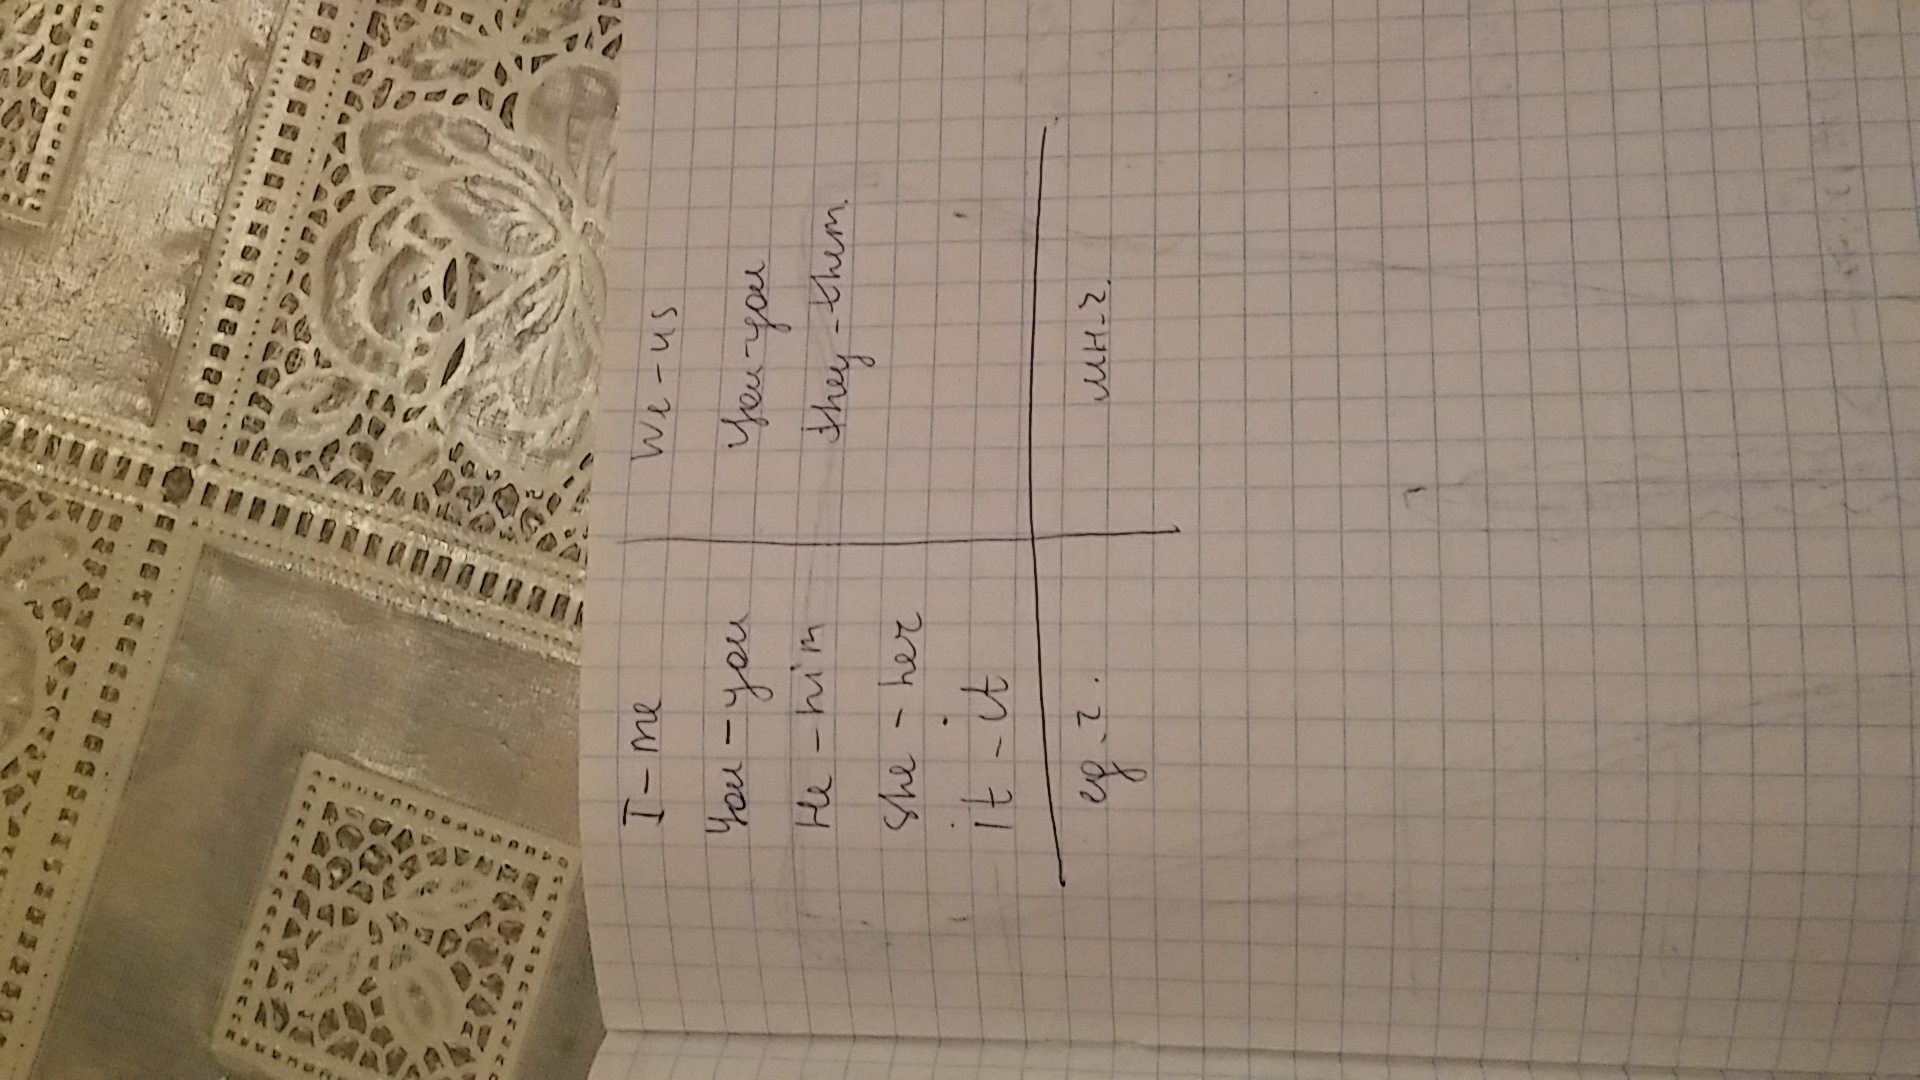 I - me We - us
You - you You - you
He - him they - them.
She - her
it - it
ед. ч. мн-ч.